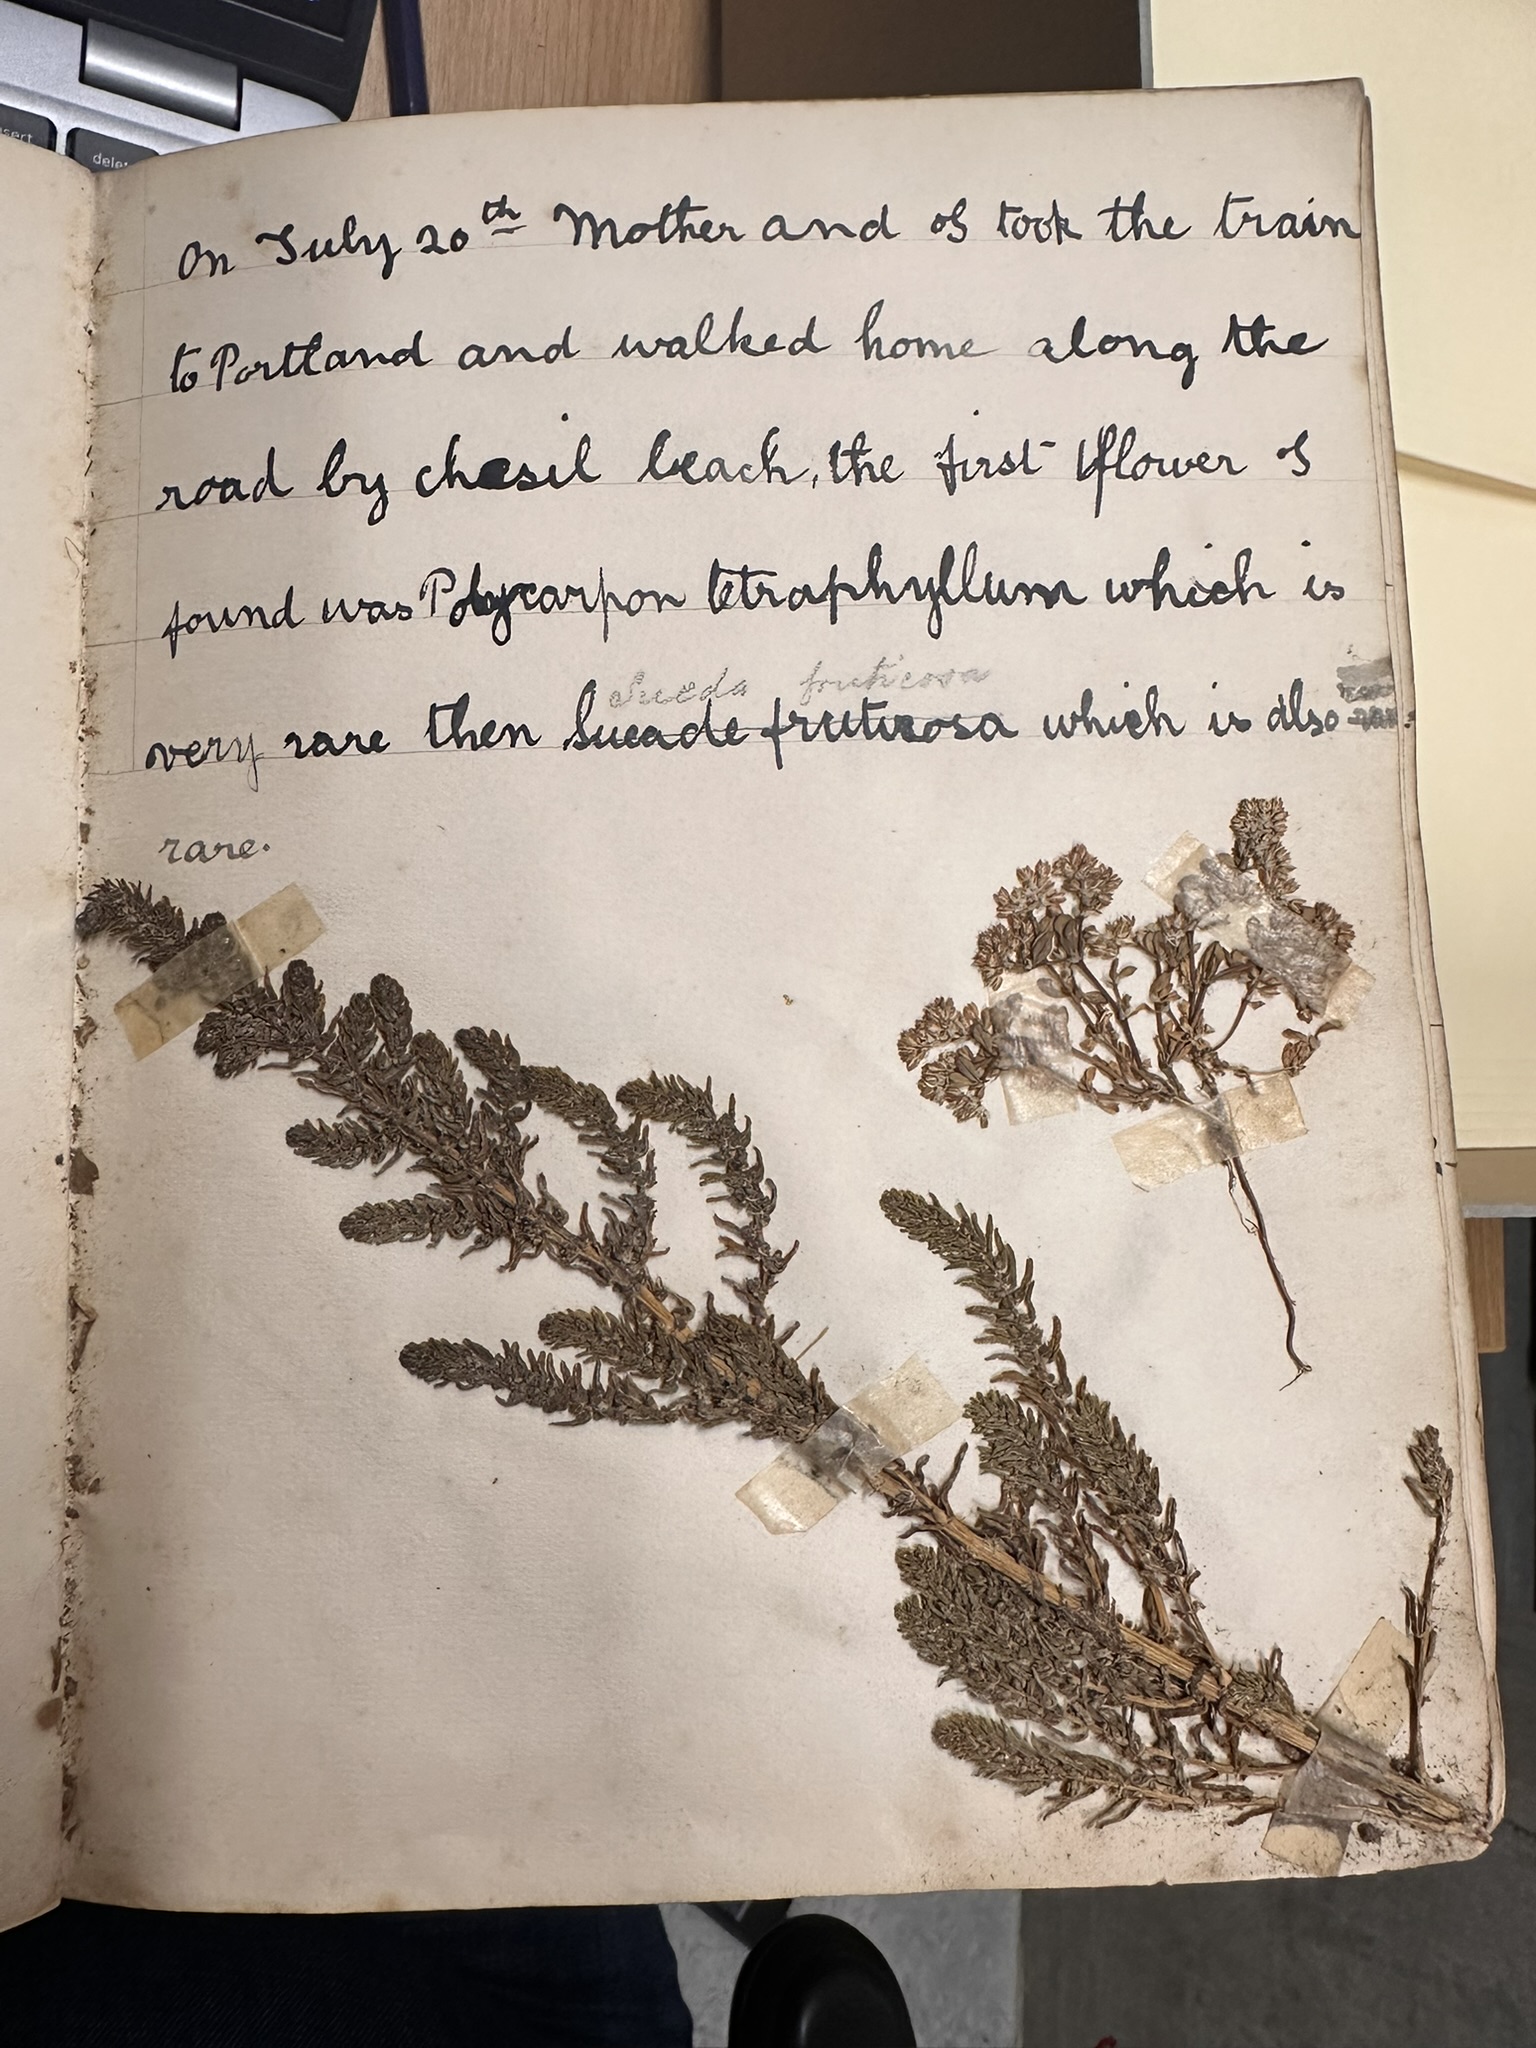 insert
delete
On July 20th Mother and I took the train
to Portland and walked home along the
road by chesil beach, the first flower I
found was Polycarpon tetraphyllum which is
Sueda fruticosa
very rare then Sueade fruticosa which is also
rare.